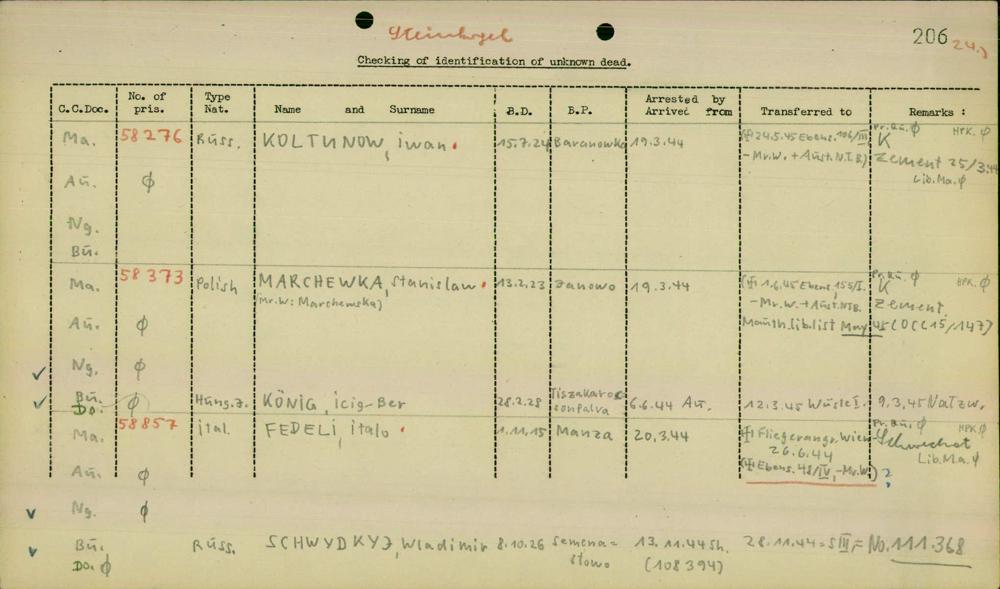 206
24.)
Checking of identification of unknown dead.
C.C.Doc. No. of pris. Type Nat. Name and Surname B.D. B.P. Arrested by Arrived from Transferred to Remarks :
Ma. 58276 Rüss. KOLTUNOW, iwan. 15.7.24 Baranowka 19.3.44 24.5.45 Ebens. 106/III Pr.Bu. ϕ HPK. ϕ
K
-Mr.W. + Aüst. N.T.B.) Zement 25/3.44
Aü. ϕ Lib.Ma. ϕ
Ng.
Bü.
Ma. 58373 Polish MARCHEWKA, Stanislaw. 13.2.23 Janowo 19.3.44 1.6.45 Ebens. 155/I. K HPK. ϕ
(Mr.W: Marchemska) -Mr.W. + Aüst. NTB. Zement
Aü. ϕ Mauth. lib.list May 45 (OCC15/147)
Ng. ϕ
Bü. ϕ Hung.J. KÖNIG, icig-Ber 28.2.28 6.6.44 Aü. 12.3.45 9.3.45 Natzw.
Do.
Ma. 58857 ital. FEDELI, italo. 1.11.15 Manza 20.3.44 Fliegerangr. Wien- Schwechat HPK ϕ
26.6.44 Lib.Ma. ϕ
Aü. ϕ Ebens. 48/IV, -Mr.W.) ?
Ng. ϕ
Bü. Rüss. SCHWYDKYJ, Wladimir 8.10.26 Semena= 13.11.44 Sh. 28.11.44 = SIII = No. 111.368
Do. ϕ stowo (108394)